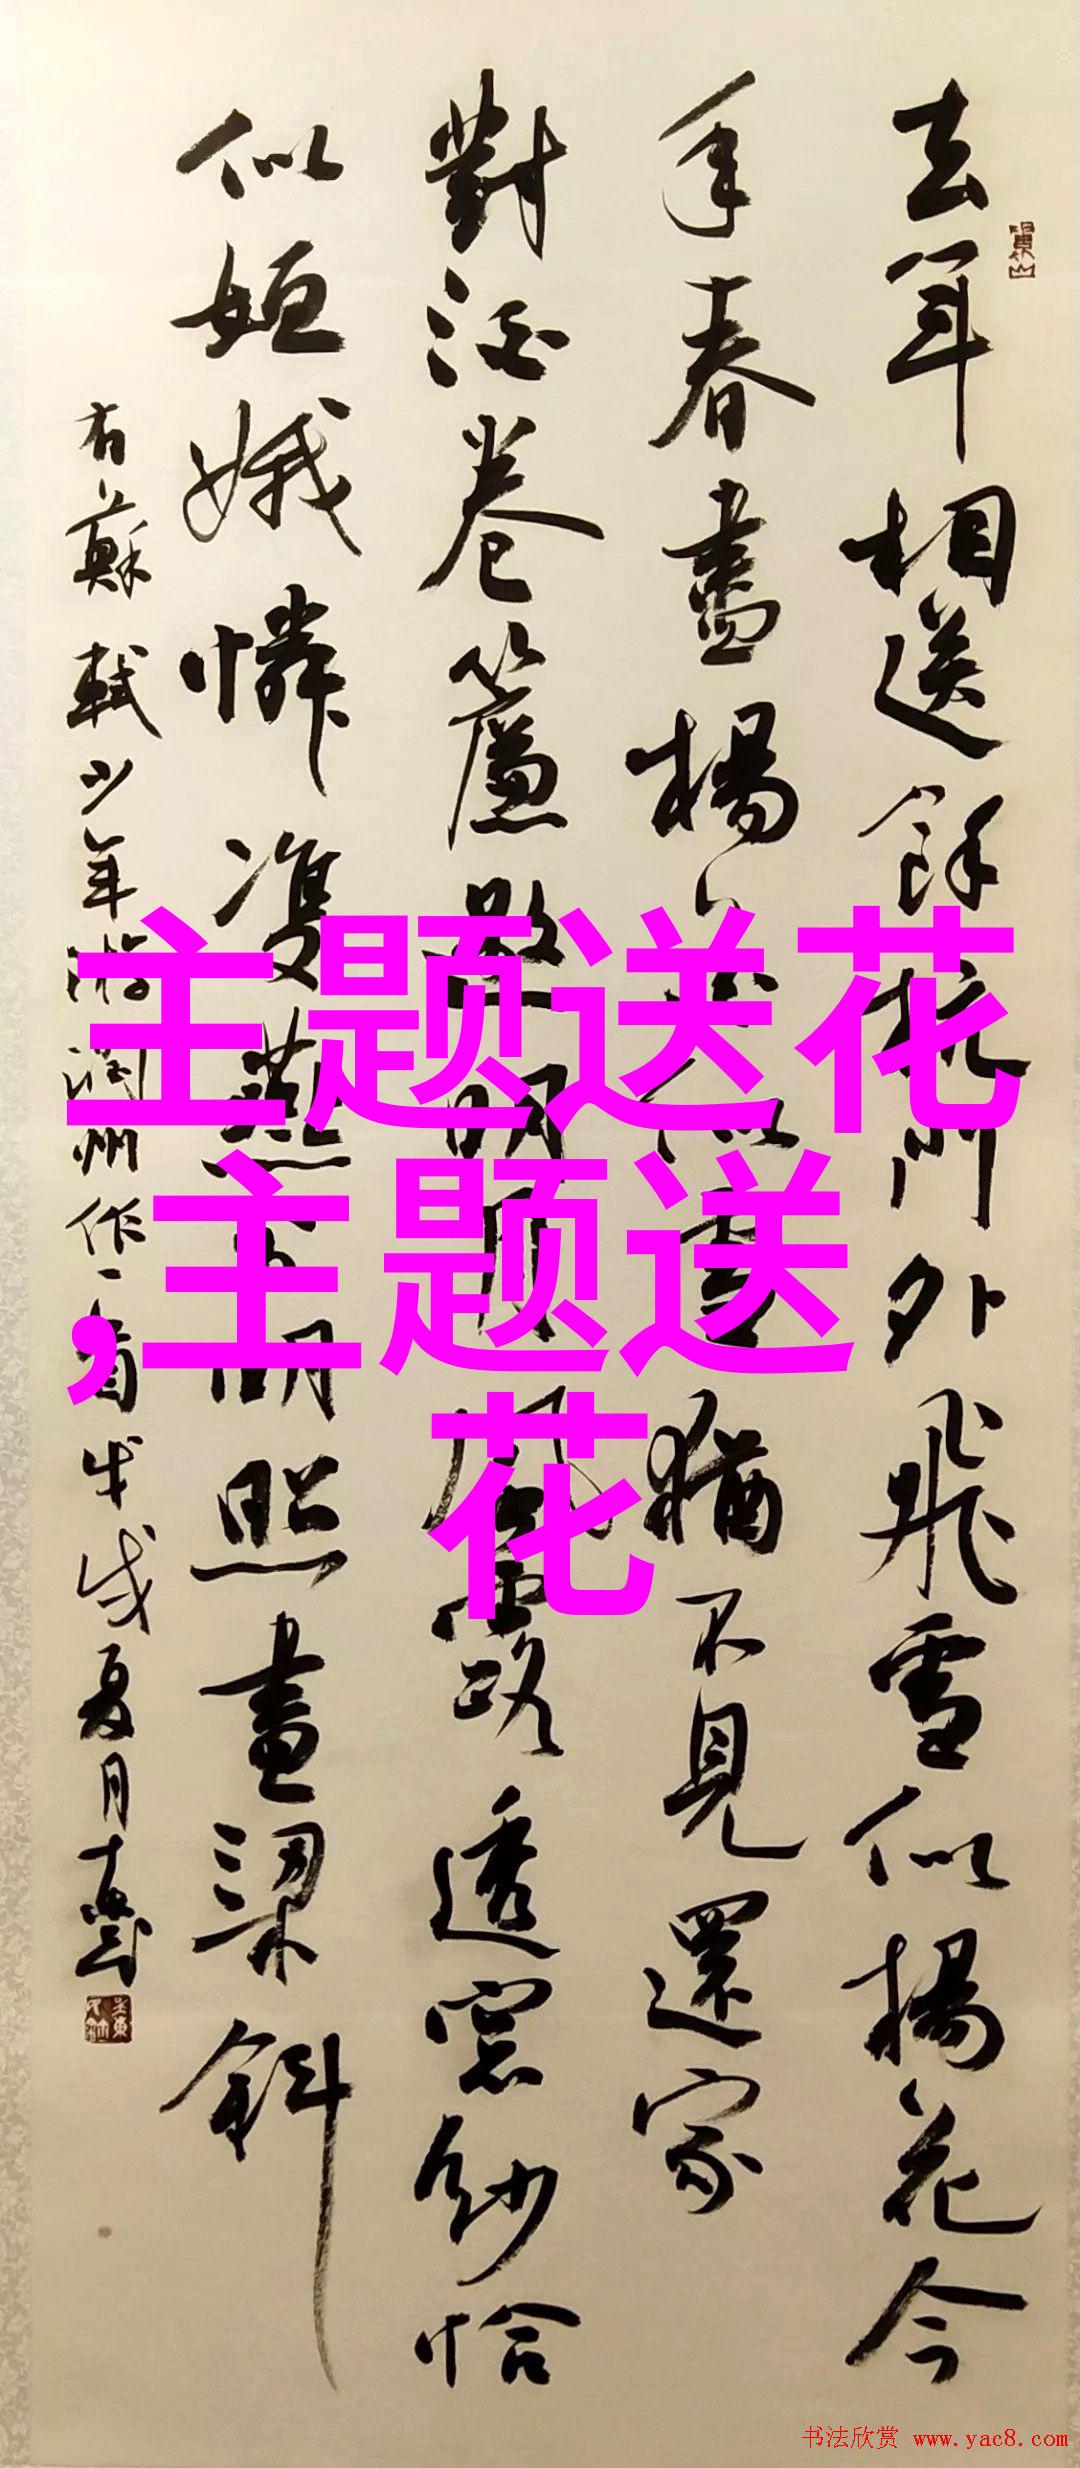 去年相送餘杭門外飛雪似楊花今
年春盡楊花似雪猶不見還家
對酒卷簾邀明月風露透窓紗恰
似姮娥憐雙燕分明照畫梁斜
右蘇軾少年游潤州作一首戊戌夏月
主题送花
,主题送
花
书法欣赏 www.yac8.com